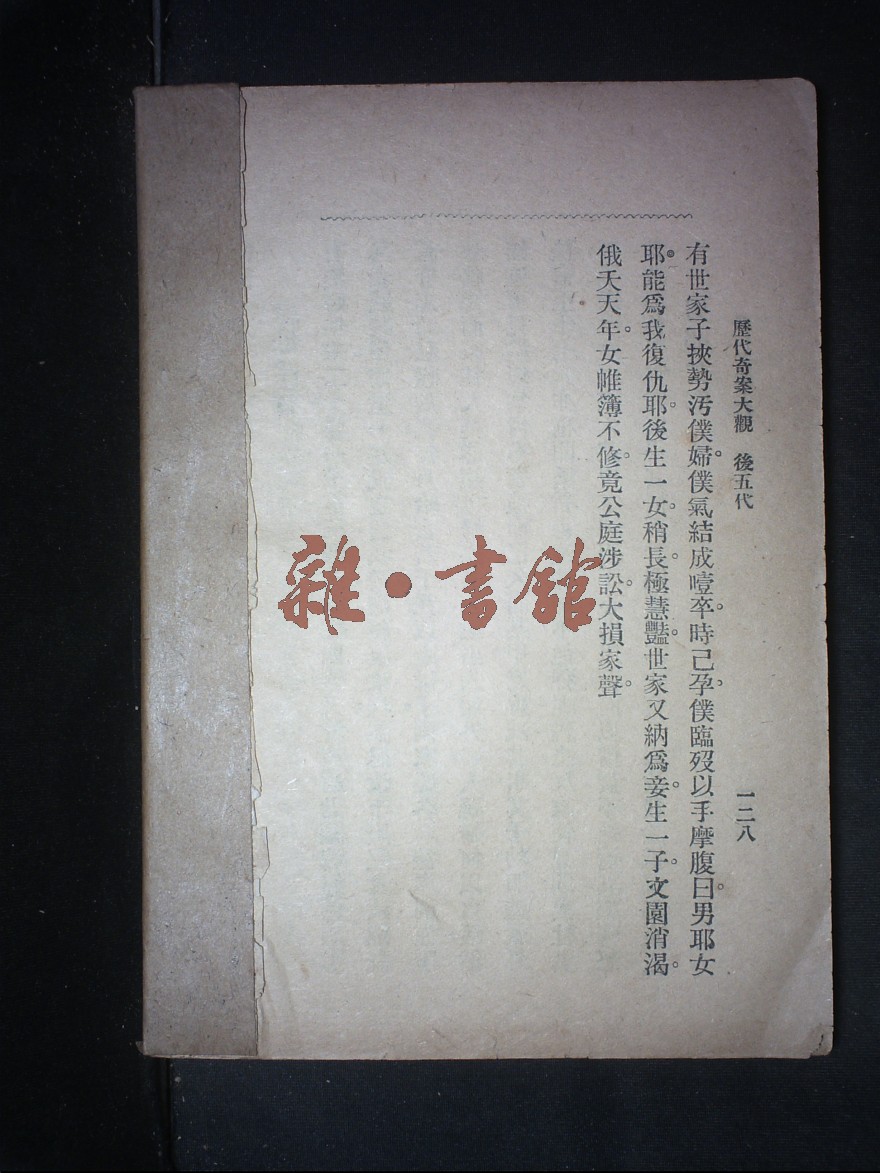 歷代奇案大觀　後五代　一二八
有世家子挾勢汚僕婦。僕氣結成噎。卒時己孕。僕臨歿以手摩腹曰。男耶女
耶。能爲我復仇耶。後生一女。稍長。極慧豔。世家又納爲妾。生一子。文園消渴。
俄夭天年。女帷簿不修。竟公庭涉訟。大損家聲。
雜·書館